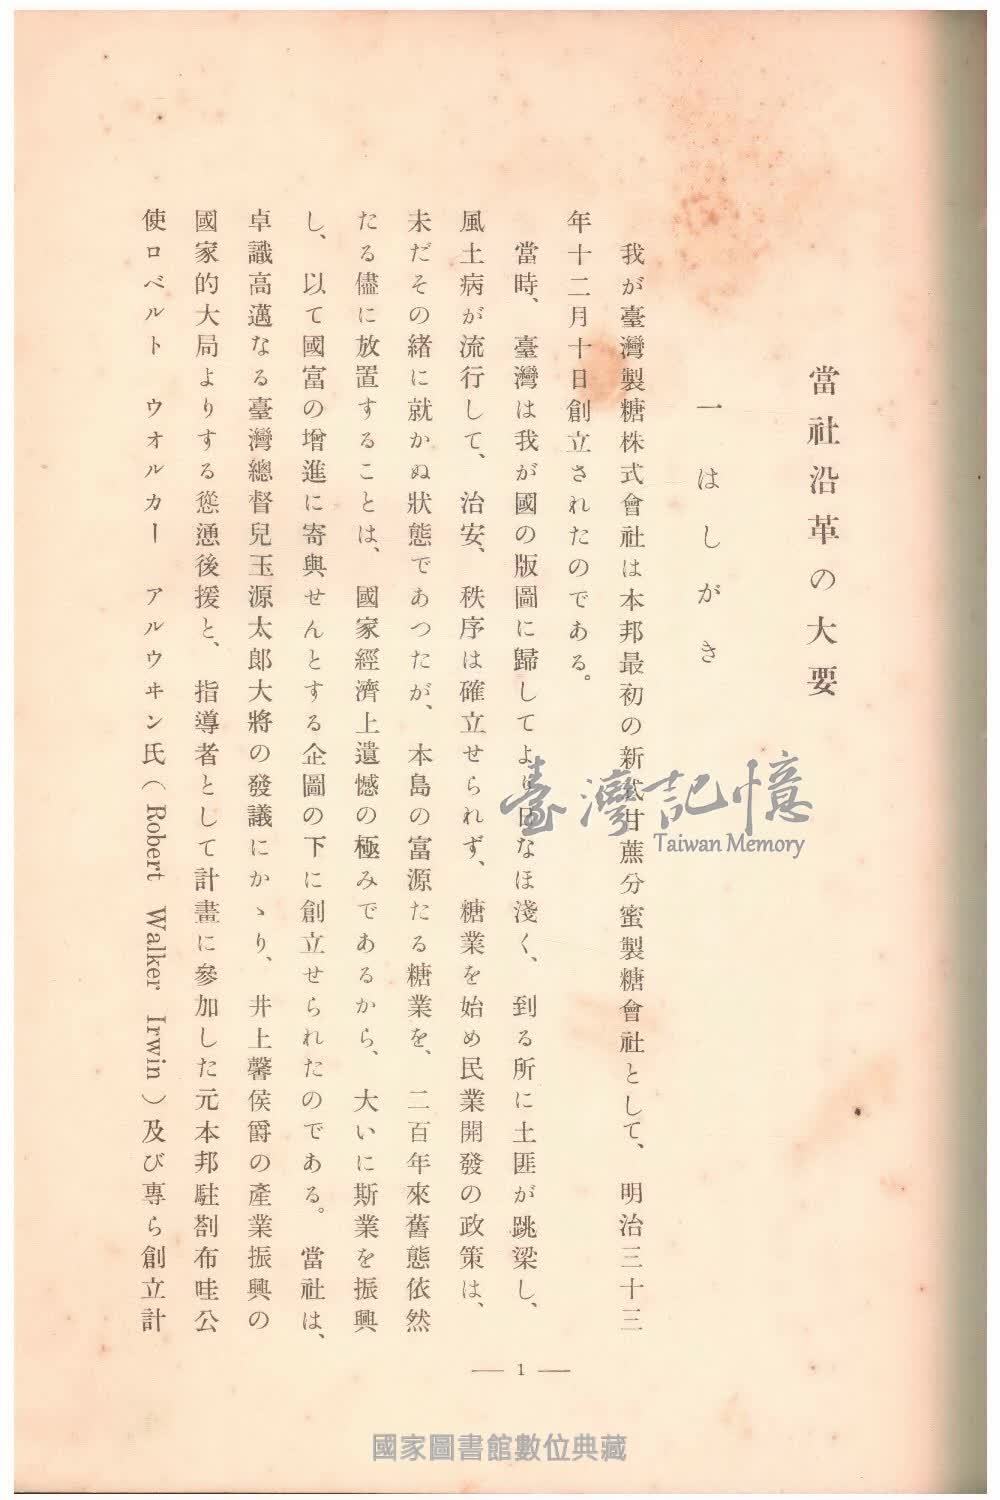 當社沿革の大要
一 はしがき
我が臺灣製糖株式會社は本邦最初の新式甘蔗分蜜製糖會社として、明治三十三
年十二月十日創立されたのである。
當時、臺灣は我が國の版圖に歸してより日なほ淺く、到る所に土匪が跳梁し、
風土病が流行して、治安、秩序は確立せられず、糖業を始め民業開發の政策は、
未だその緒に就かぬ狀態であつたが、本島の富源たる糖業を、二百年來舊態依然
たる儘に放置することは、國家經濟上遺憾の極みであるから、大いに斯業を振興
し、以て國富の增進に寄與せんとする企圖の下に創立せられたのである。當社は、
卓識高邁なる臺灣總督兒玉源太郞大將の發議にかゝり、井上馨侯爵の產業振興の
國家的大局よりする慫慂後援と、指導者として計畫に參加した元本邦駐劄布哇公
使ロベルト ウォルカー アルウヰン氏(Robert Walker Irwin)及び專ら創立計
— 1 —
臺灣記憶
Taiwan Memory
國家圖書館數位典藏